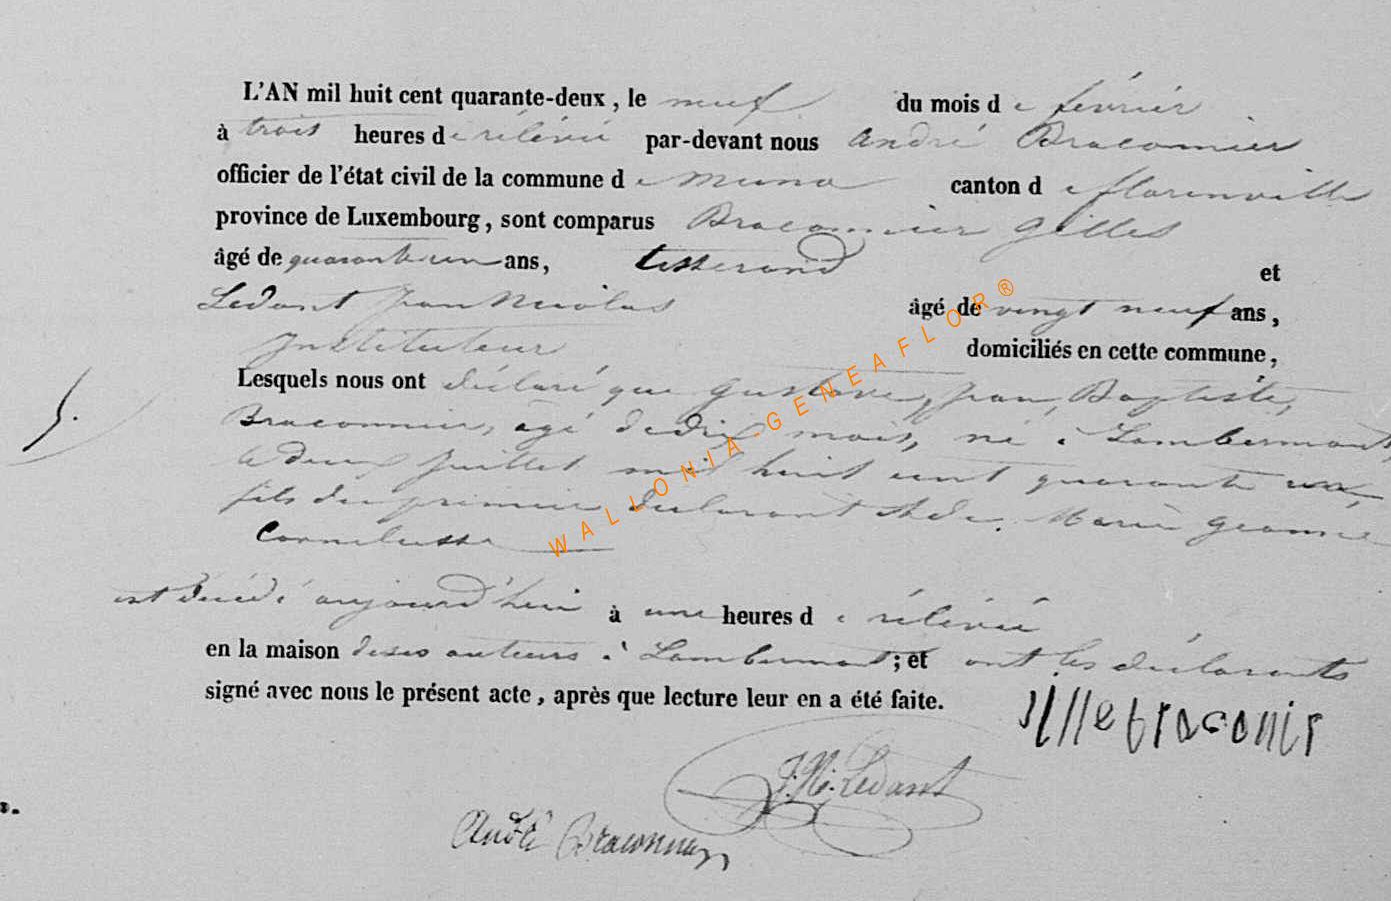 L'AN mil huit cent quarante-deux, le neuf du mois de février
à trois heures de rélévée par-devant nous André Braconnier
officier de l'état civil de la commune de Muno canton de florenville
province de Luxembourg, sont comparus Braconnier Gilles
âgé de quarante un ans, tisserand et
Ledant Jean Nicolas âgé de vingt neuf ans,
Instituteur domiciliés en cette commune,
Lesquels nous ont déclaré que Gustave, Jean, Baptiste,
Braconnier, âgé de mois, né à Lambermont,
le deux Juillet mil huit cent quarante un
fils du premier déclarant et de Marie
5.
est décédé aujourd'hui à une heures de rélévée
en la maison de ses auteurs à Lambermont; et ont les déclarants
signé avec nous le présent acte, après que lecture leur en a été faite.
J. N. Ledant
André Braconnier
WALLONIA-GENEAFLOR®